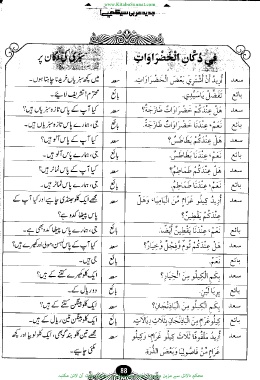 www.KitaboSunnat.com
جدید عربی سیکھیے
فِي دُكَّانِ الْخَضْرَاوَاتِ
سبزی کی دکان پر
سعد أُرِيدُ أَنْ أَشْتَرِيَ بَعْضَ الْخَضْرَاوَاتِ. سعد میں کچھ سبزیاں خریدنا چاہتا ہوں۔
بائع تَفَضَّلْ يَا سَيِّدِي. بائع محترم! تشریف لایئے۔
سعد هَلْ عِنْدَكُمْ خَضْرَاوَاتٌ طَازَجَةٌ؟ سعد کیا آپ کے پاس تازہ سبزیاں ہیں؟
بائع نَعَمْ، عِنْدَنَا خَضْرَاوَاتٌ طَازَجَةٌ. بائع جی، ہمارے پاس تازہ سبزیاں ہیں۔
سعد هَلْ عِنْدَكُمْ بَطَاطِسُ؟ سعد کیا آپ کے پاس آلو ہیں؟
بائع نَعَمْ، عِنْدَنَا بَطَاطِسُ. بائع جی، ہمارے پاس آلو ہیں۔
سعد هَلْ عِنْدَكُمْ طَمَاطِمُ؟ سعد کیا آپ کے پاس ٹماٹر ہیں؟
بائع نَعَمْ، عِنْدَنَا طَمَاطِمُ. بائع جی، ہمارے پاس ٹماٹر ہیں۔
سعد أُرِيدُ كِيلُو غَرَامٍ مِنَ الْبَامِيَا، وَهَلْ سعد مجھے ایک کلو بھنڈی چاہیے اور کیا آپ کے
عِنْدَكُمْ يَقْطِينٌ؟ پاس پیٹھا کدو ہے؟
بائع نَعَمْ، عِنْدَنَا يَقْطِينٌ أَيْضًا. بائع جی، ہمارے پاس پیٹھا کدو بھی ہے۔
سعد هَلْ عِنْدَكُمْ ثُومٌ وَفِجْلٌ وَخِيَارٌ؟ سعد کیا آپ کے پاس لہسن، مولی اور کھیرے ہیں؟
بائع نَعَمْ. بائع جی ہاں۔
سعد بِكَمِ الْكِيلُو مِنَ الْخِيَارِ؟ سعد ایک کلو کھیرے کتنے کے ہیں؟
بائع بِرِيَالَيْنِ. بائع دو ریال کے۔
سعد بِكَمْ كِيلُو مِنَ الْبَاذِنْجَانِ؟ سعد ایک کلو بینگن کتنے کے ہیں؟
بائع كِيلُو غَرَامٍ مِنَ الْبَاذِنْجَانِ بِثَلَاثِ رِيَالَاتٍ. بائع ایک کلو بینگن تین ریال کے ہیں۔
سعد أُرِيدُ مَلْفُوفًا ثَلَاثَ كِيلُو غَرَامٍ، وَكِيلُو سعد مجھے تین کلو بند گوبھی، ایک کلو لوبیا اور کچھ
غَرَامٍ مِنْ فَاصُولِيَا وَبَعْضَ الذُّرَةِ. مکئی چاہیے۔
88